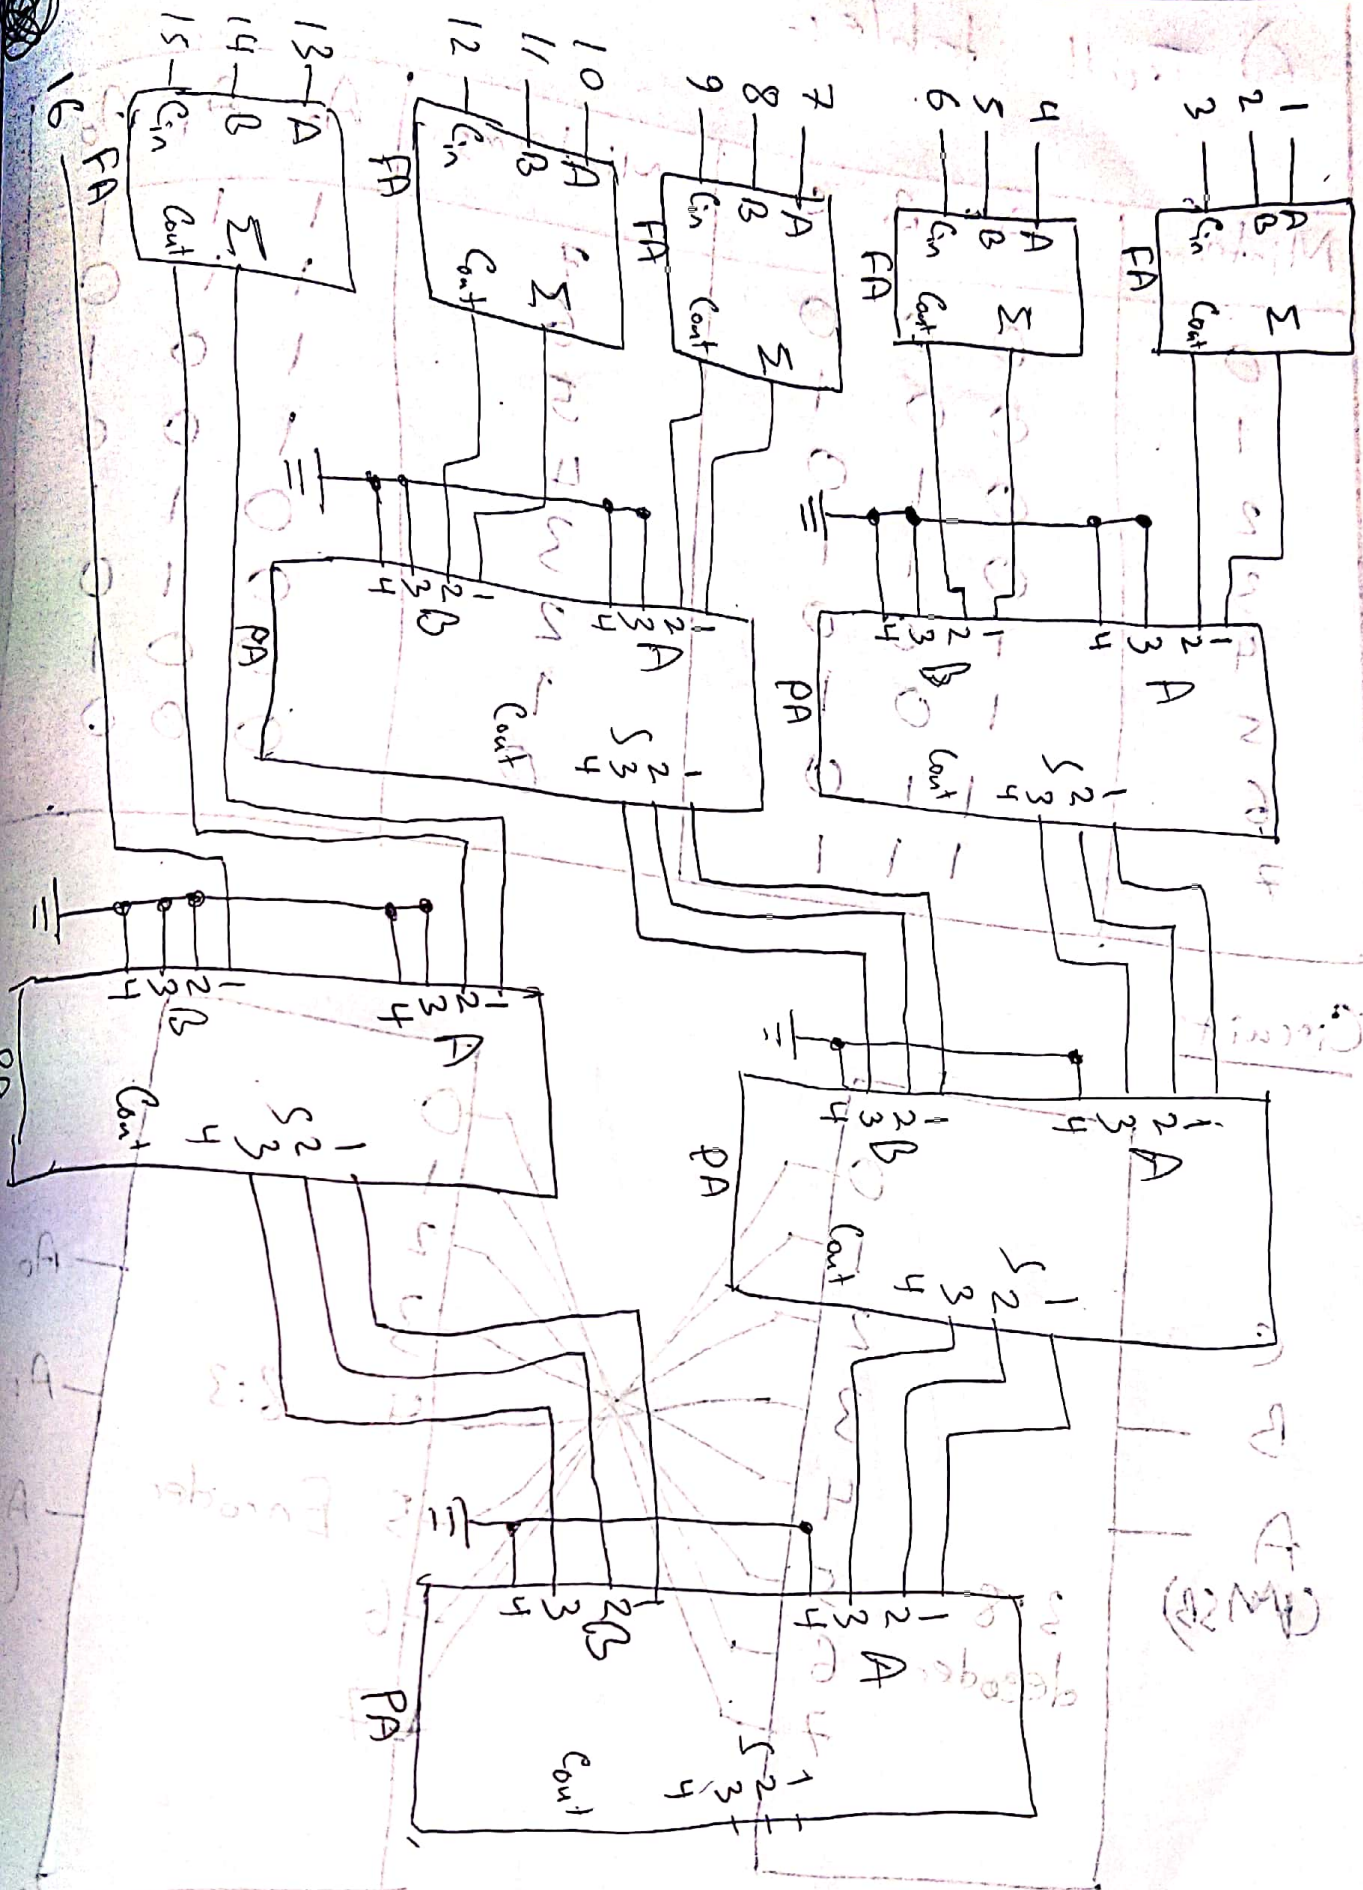 1
2
3
A
B
Cin
Σ
Cout
FA
4
5
6
A
B
Cin
Σ
Cout
FA
7
8
9
A
B
Cin
Σ
Cout
FA
10
11
12
A
B
Cin
Σ
Cout
FA
13
14
15
A
B
Cin
Σ
Cout
FA
16
1
2
3
4
A
1
2
3
4
B
1
2
3
4
S
Cout
PA
1
2
3
4
A
1
2
3
4
B
1
2
3
4
S
Cout
PA
1
2
3
4
A
1
2
3
4
B
1
2
3
4
S
Cout
PA
1
2
3
4
A
1
2
3
4
B
1
2
3
4
S
Cout
1
2
3
4
A
1
2
3
4
B
1
2
3
4
S
Cout
PA